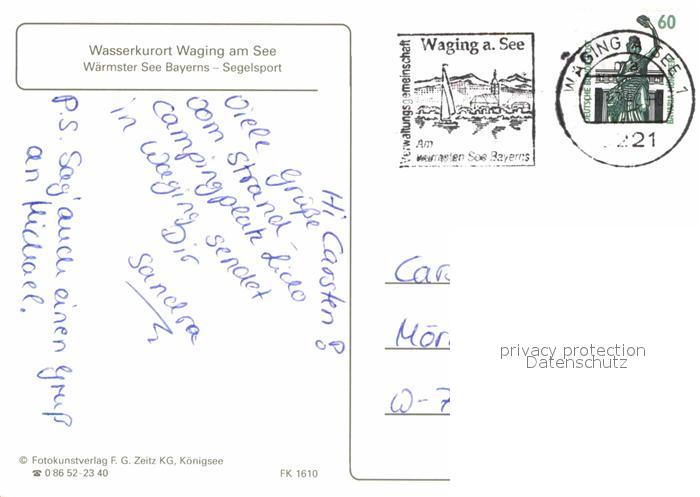 Wasserkurort Waging am See
Wärmster See Bayerns – Segelsport
Hi Carsten!
Viele Grüße
vom Strand-
campingplatz Lido
in Waging sendet
Dir
Sandra
P.S. Sag' auch einen Gruß
an Michael.
© Fotokunstverlag F. G. Zeitz KG, Königsee
☎ 0 86 52-23 40
FK 1610
Verwaltungsgemeinschaft
Waging a. See
Am
wärmsten See Bayerns
60
WAGING A SEE 1
8221
Car
Mör
W-7
privacy protection
Datenschutz